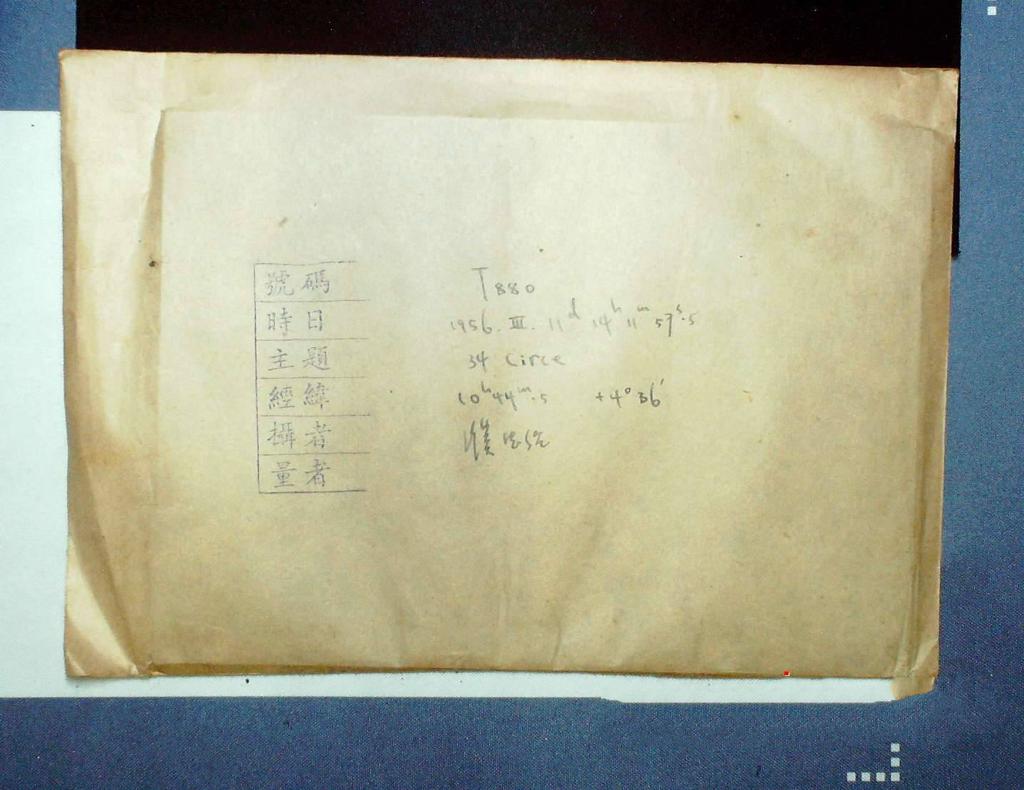 號碼 T880
時日 1956. III. 11ᵈ 14ʰ 11ᵐ 57ˢ.5
主題 34 Circe
經緯 10ʰ44ᵐ.5 +4°36′
攝者
量者